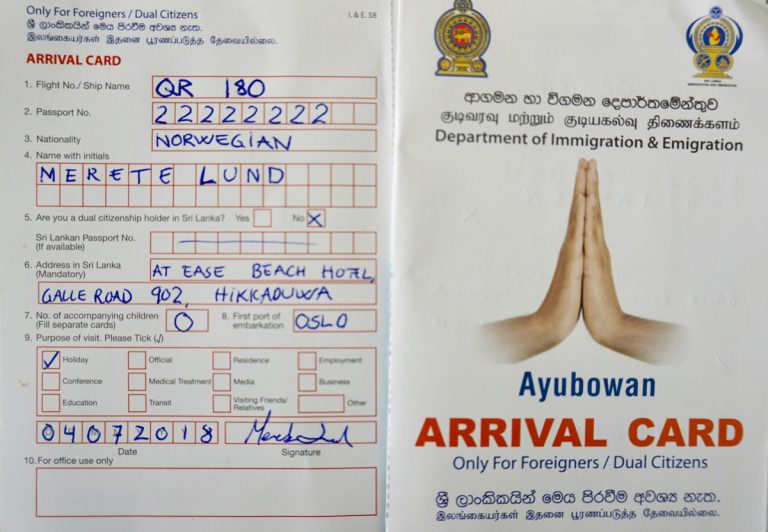 Only For Foreigners / Dual Citizens
I. & E. 58
ශ්‍රී ලාංකිකයින් මෙය පිරවීම අවශ්‍ය නැත.
இலங்கையர்கள் இதனை பூரணப்படுத்த தேவையில்லை.
ARRIVAL CARD
1. Flight No./ Ship Name QR 180
2. Passport No. 22222222
3. Nationality NORWEGIAN
4. Name with initials
MERETE LUND
5. Are you a dual citizenship holder in Sri Lanka? Yes No X
Sri Lankan Passport No.
(If available)
6. Address in Sri Lanka AT EASE BEACH HOTAL,
(Mandatory)
GALLE ROAD 902, HIKKADUWA
7. No. of accompanying children 0 8. First port of OSLO
(Fill separate cards) embarkation
9. Purpose of visit. Please Tick (√)
√ Holiday Official Residence Employment
Conference Medical Treatment Media Business
Education Transit Visiting Friends/ Other
Relatives
04072018
Date Signature
10. For office use only
SRI LANKA
IMMIGRATION AND EMIGRATION
ආගමන හා විගමන දෙපාර්තමේන්තුව
குடிவரவு மற்றும் குடியகல்வு திணைக்களம்
Department of Immigration & Emigration
Ayubowan
ARRIVAL CARD
Only For Foreigners / Dual Citizens
ශ්‍රී ලාංකිකයින් මෙය පිරවීම අවශ්‍ය නැත.
இலங்கையர்கள் இதனை பூரணப்படுத்த தேவையில்லை.